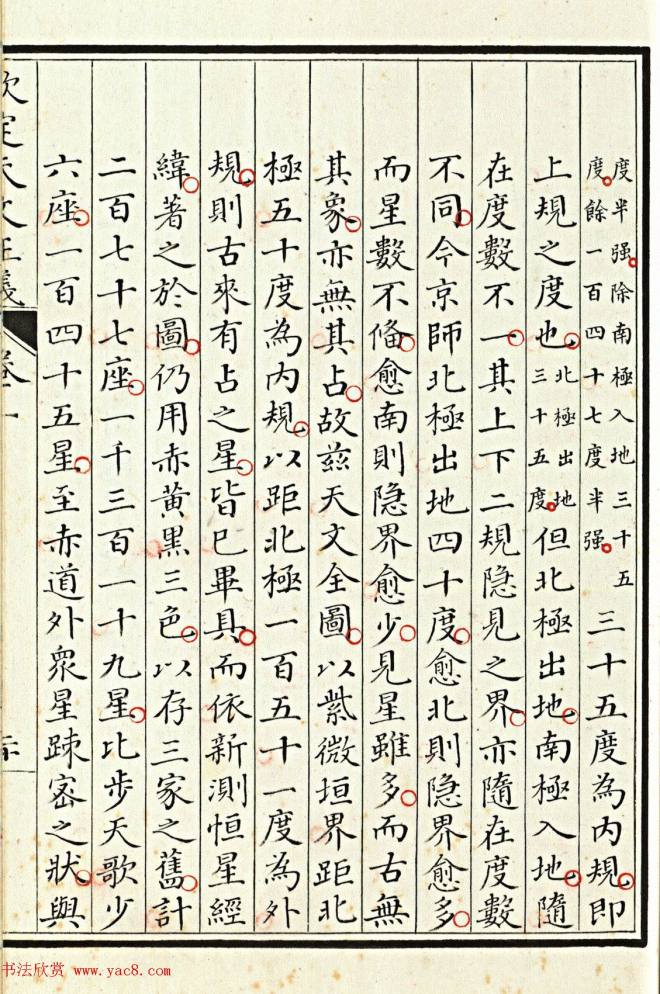 度半强除南極入地三十五
度餘一百四十七度半强三十五度為内規即
上規之度也北極出地
三十五度但北極出地南極入地隨
在度數不一其上下二規隐見之界亦隨在度數
不同今京師北極出地四十度愈北則隐界愈多
而星數不俻愈南則隐界愈少見星雖多而古無
其象亦無其占故兹天文全圖以紫微垣界距北
極五十度為内規以距北極一百五十一度為外
規則古來有占之星皆已畢具而依新測恒星經
緯著之於圖仍用赤黄黒三色以存三家之舊計
二百七十七座一千三百一十九星比步天歌少
六座一百四十五星至赤道外衆星踈宻之狀與
欽定天文正義
卷一
书法欣赏 www.yac8.com